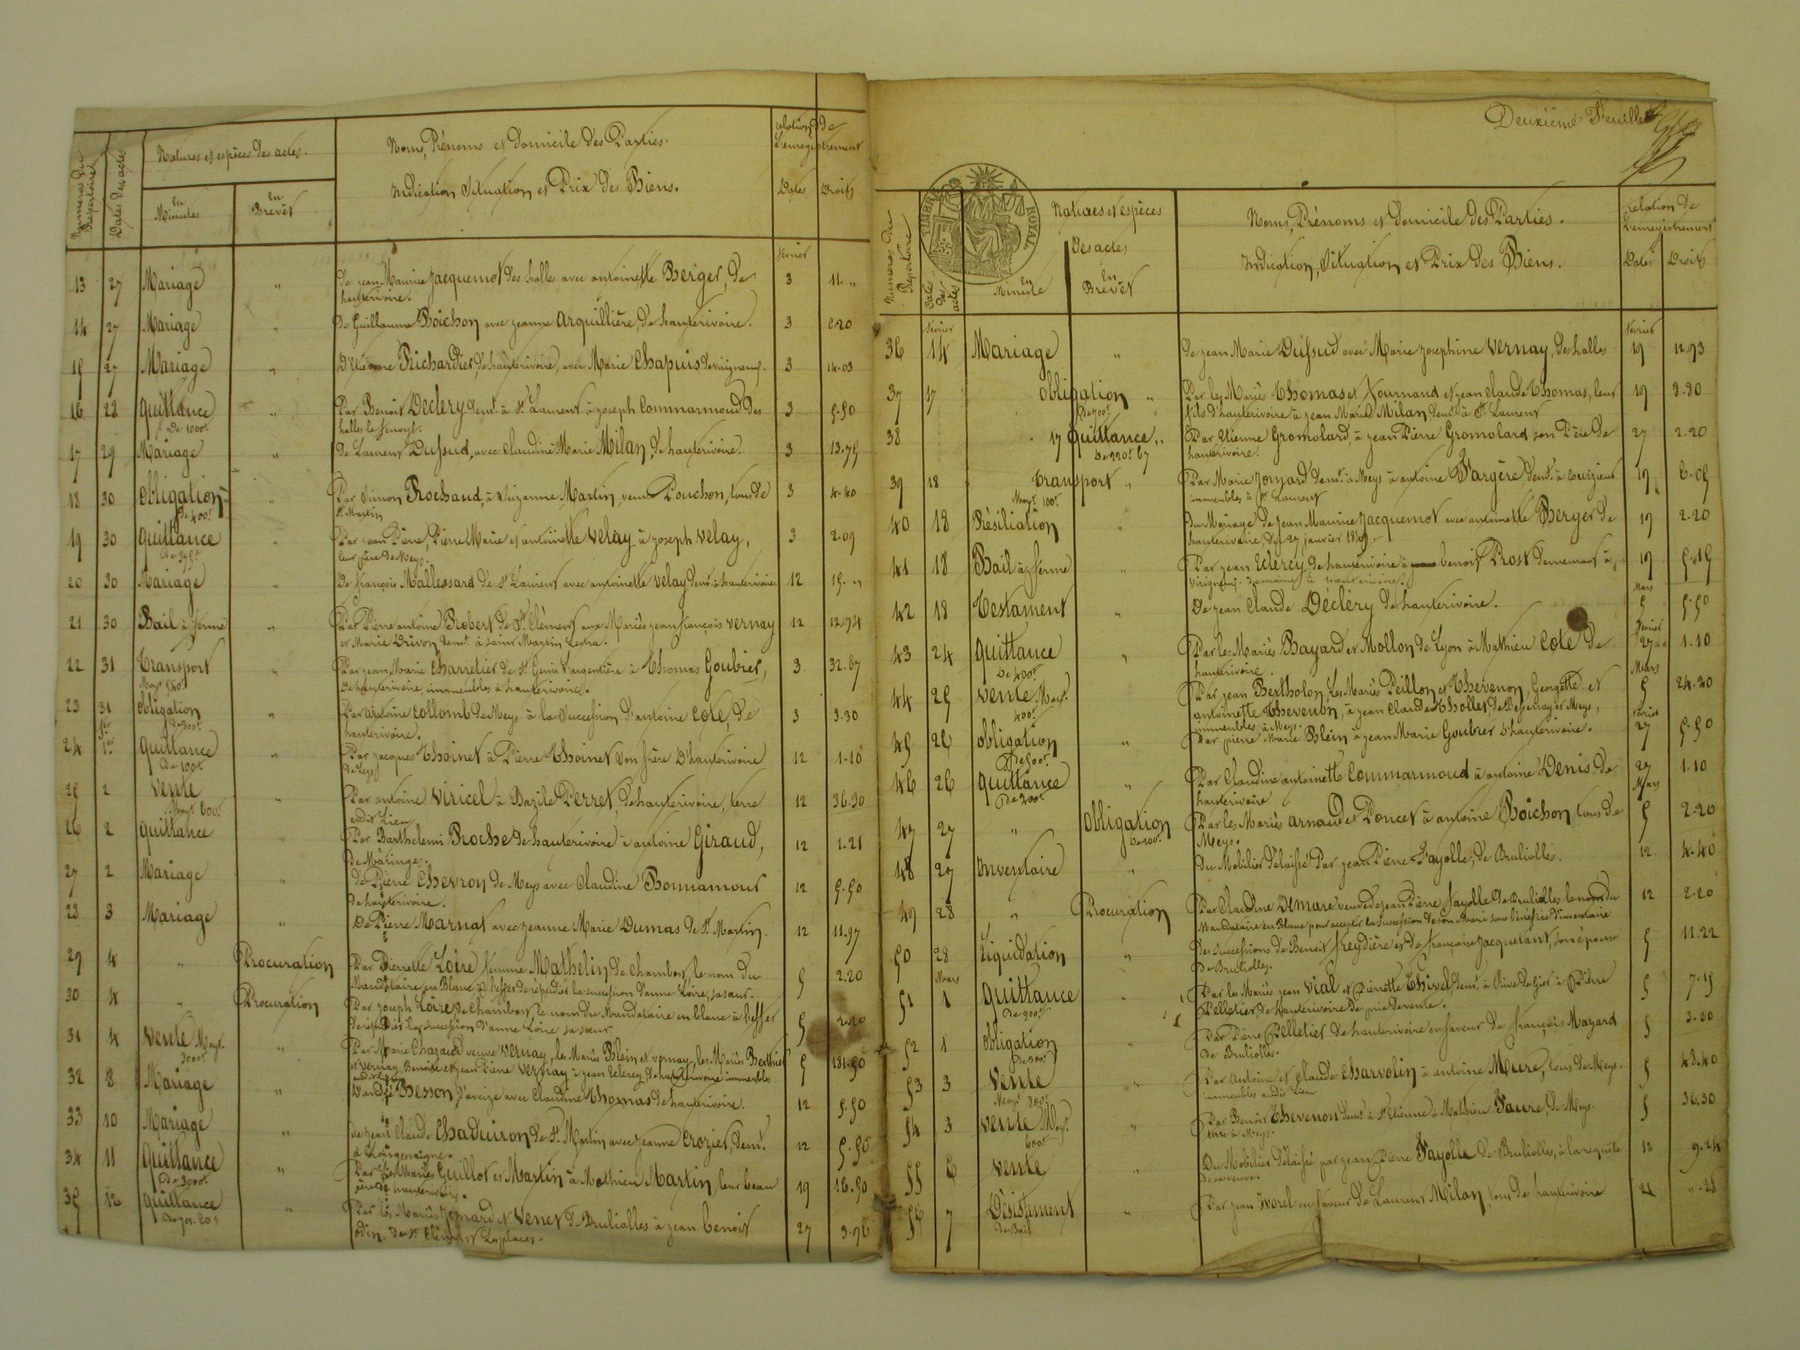 Numéros du Répertoire
Dates des actes
Natures et espèces des actes.
en Minutes
en Brevet
Noms, Prénoms et domicile des Parties.
Indication, Situation et Prix des Biens.
relation de l'enregistrement
Dates
Droits
février
13 27 Mariage " de jean Maurice Jacquemot des halles avec antoinette Berger, de 3 11. "
hauterivoire.
14 27 Mariage " De Guillaume Boichon avec jeanne Arquillière, de hauterivoire. 3 2.20
15 27 Mariage " D'Etienne Richardier de hauterivoire, avec Marie Chapuis 3 14.03
16 28 quittance " Par Benoit Declery demt. à St. Laurent à joseph Commarmond des 3 5.50
De 1000f. halles le
17 29 Mariage " de Laurent Dussud, avec Claudine Marie Milan, de hauterivoire. 3 13.75
18 30 Obligation " Par Simon Rochand, à Suzanne Martin, veuve Pouchon, tous de 3 4.40
de 400f. St. Martin
19 30 quittance " Par jean Pierre, Pierre Marie et antoinette Velay à joseph Velay, 3 2.09
leur père de Meys.
20 30 Mariage " De françois Mallessard de St. Laurent avec antoinette Velay demt. à hauterivoire 12 15. "
21 30 Bail à ferme " Par Pierre antoine Probert de St. Clément aux Mariés jean françois Vernay 12 12.94
et Marie Drivon demt. à saint Martin Lestra.
22 31 Transport " Par jean Marie Charretier de St. Genis l'argentière à Thomas Goubier, 3 32.67
de hauterivoire, immeubles à hauterivoire.
23 31 obligation " Par antoine Collomb de Meys à la Succession d'antoine Cote, de 3 3.30
de 300f. hauterivoire.
24 1er quittance " Par jacques Thoinet à Pierre Thoinet son frère D'hauterivoire 12 1.10
de 100f.
25 2 Vente " Par antoine Viricel à Bazile Perret, de hauterivoire, terre 12 36.30
Moyt. 600f. audit Lieu
26 2 quittance " Par Barthelemi Roche de hauterivoire à antoine Giraud, 12 1.21
de Maringes.
27 2 Mariage " de Pierre Chevron de Meys avec Claudine Bonnamour 12 5.50
de hauterivoire.
28 3 Mariage " De Pierre Marnas avec jeanne Marie Dumas de St. Martin. 12 11.97
29 4 " Procuration Par Pierrette Loire femme Mathelin de Chambost le nom du 5 2.20
Mandataire en Blanc à l'effet de répudier la succession d'anne Loire, sa sœur.
30 4 " Procuration Par joseph Loire de Chambost le nom du Mandataire en blanc à l'effet 5 2.20
de répudier la succession d'anne Loire sa sœur
31 4 Vente Moyt. " Par Marie Chazaud veuve Vernay, les Mariés Blein et Vernay, les Mariés Berthier 5 181.50
3000f. et Vernay, Benoite et jean Pierre Vernay à jean Eclercy, de hauterivoire immeubles
32 8 Mariage " D'andré Besson, d'aveize avec Claudine Thomas de hauterivoire. 12 5.50
33 10 Mariage " de jean Claude Chaduiron de St. Martin avec jeanne Crozier, demt. 12 5.50
à Longessaigne.
34 11 quittance " Par les Mariés Guillot et Martin à Mathieu Martin, leur beau 19 16.50
De 3000f. frère de hauterivoire.
35 12 quittance " Par les Mariés Jomard et Venet de Brullioles à jean benoit 27 3.96
odin, de St. Clément Les places.
Deuxième Feuillet
TIMBRE ROYAL
Numéros du Répertoire
Dates des actes
Natures et espèces
Des actes
en Minute
en Brevet
Noms, Prénoms et domicile des Parties.
Indication, Situation et Prix des Biens.
relation de l'enregistrement
Dates
Droits
février février
36 14 Mariage " de jean Marie Dussud avec Marie josephine Vernay, des halles 19 12.93
37 17 obligation " Par les Mariés Thomas et Fournand et jean Claude Thomas, leur 19 8.80
de 700f. fils d'hauterivoire à jean Marie Milan demt. à St. Laurent
38 17 quittance " Par Etienne Gromolard, à jean Pierre Gromolard son Père de 27 2.20
De 220f. 67 hauterivoire.
39 18 transport " Par Marie Jomard demt. à Meys à antoine Fargère demt. à 19 6.05
Moyt. 100f. immeubles à St. Laurent
40 18 Résiliation " du Mariage de jean Maurice Jacquemot avec antoinette Berger de 19 2.20
hauterivoire, du 27 janvier
41 18 Bail à ferme " Par jean Eclercy de hauterivoire à benoit Prost demeurant à 19 5.15
Mars
42 18 Testament " De jean Claude Décléry de hauterivoire. 5 5.50
février
43 24 quittance " Par les Mariés Bayard et Mollon de Lyon à Mathieu Cote de 27 1.10
De 400f. hauterivoire. Mars
44 25 Vente Moyt. " Par jean Bertholon, Les Mariés Peillon et Thevenon, Georgette et 5 24.20
400f. antoinette Thevenon, à jean Claude Thollet de Bessenay et Meys,
immeubles à Meys. février
45 26 obligation " Par pierre Marie Blein à jean Marie Goubier d'hauterivoire. 27 5.50
De 500f.
46 26 quittance " Par Claudine antoinette Commarmond à antoine Denis de 27 1.10
De 200f. hauterivoire Mars
47 27 " Obligation Par les Mariés Arnaud et Poncet à antoine Boichon tous de 5 2.20
De 200f. Meys.
48 27 Inventaire " du Mobilier délaissé Par jean Pierre Fayolle, de Brullioles. 12 4.40
49 28 " Procuration Par Claudine Demare veuve de jean Pierre Fayolle de Brullioles le nom du 12 2.20
Mandataire en Blanc pour accepter la succession de son Mari sous bénéfice d'inventaire
50 28 Liquidation " des successions de Benoit freydière et de françoise Jacquetant, son épouse 5 11.22
De Brullioles.
Mars
51 1 quittance " Par les Mariés jean Vial et Pierrette Thivel demt. à Rive de Gier à Pierre 5 7.15
De 900f. Pelletier, de Hauterivoire de prix de vente.
52 1 obligation " Par Pierre Pelletier de hauterivoire en faveur de françois Mazard 5 3.30
De 300f. de Brullioles.
53 3 Vente " Par Antoine et Claude Charvolin à antoine Mure, tous de Meys. 5 48.40
immeubles audit Lieu
54 3 Vente Moyt. " Par Benoit Thevenon demt. à St. Etienne à Mathieu Faure, de Meys. 5 36.30
600f. terre à Meys.
55 6 Vente " Du Mobilier délaissé par jean Pierre Fayolle de Brullioles, à la requête 12 9.24
de sa veuve.
56 7 Désistement " Par jean Morel en faveur de Laurent Milan, tous de hauterivoire
de Bail